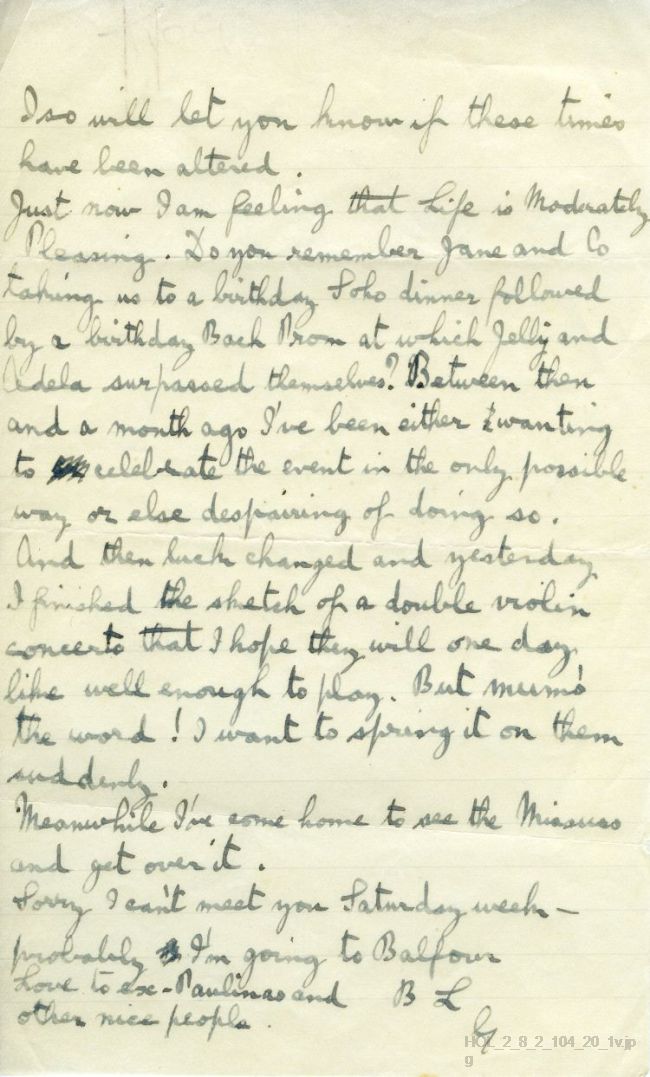 I so will let you know if these times
have been altered.
Just now I am feeling that Life is Moderately
Pleasing. Do you remember Jane and Co
taking us to a birthday Soho dinner followed
by a birthday Bach Prom at which Jelly and
Adela surpassed themselves? Between then
and a month ago I've been either wanting
to celebrate the event in the only possible
way or else despairing of doing so.
And then luck changed and yesterday
I finished the sketch of a double violin
concerto that I hope they will one day
like well enough to play. But mum's
the word! I want to spring it on them
suddenly.
Meanwhile I've come home to see the Missuss
and get over it.
Sorry I can't meet you Saturday week –
probably I'm going to Balfour
Love to ex-Paulinas and B L
other nice people. G
HOL_2_8_2_104_20_1v.jp
g